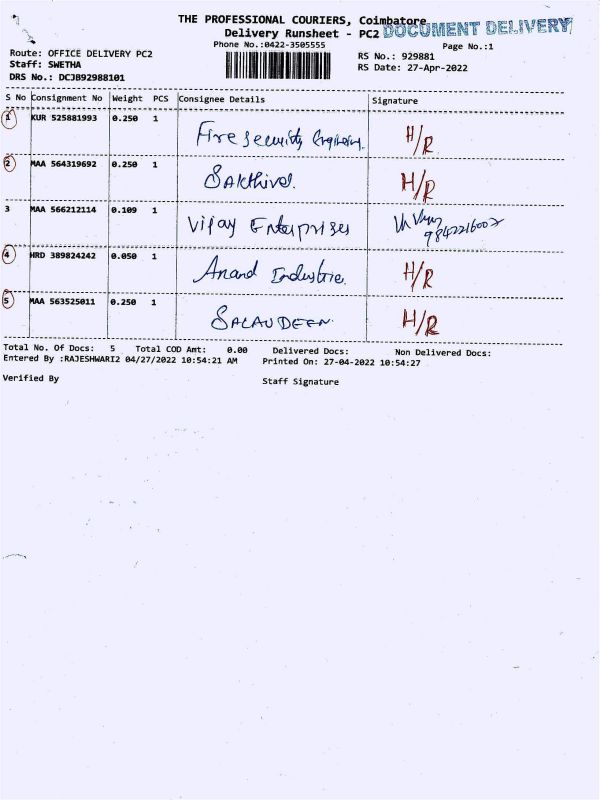 THE PROFESSIONAL COURIERS, Coimbatore
Delivery Runsheet - PC2 DOCUMENT DELIVERY
Phone No.:0422-3505555 Page No.:1
Route: OFFICE DELIVERY PC2 RS No.: 929881
Staff: SWETHA RS Date: 27-Apr-2022
DRS No.: DCJB92988101
S No Consignment No Weight PCS Consignee Details Signature
1 KUR 525881993 0.250 1 Fire Security Engineering. H/R
2 MAA 564319692 0.250 1 Sakthivel. H/R
3 MAA 566212114 0.109 1 Vijay Enterprises
9842216002
4 HRD 389824242 0.050 1 Anand Industrie. H/R
5 MAA 563525011 0.250 1 SALAUDEEN. H/R
Total No. Of Docs: 5 Total COD Amt: 0.00 Delivered Docs: Non Delivered Docs:
Entered By :RAJESHWARI2 04/27/2022 10:54:21 AM Printed On: 27-04-2022 10:54:27
Verified By Staff Signature